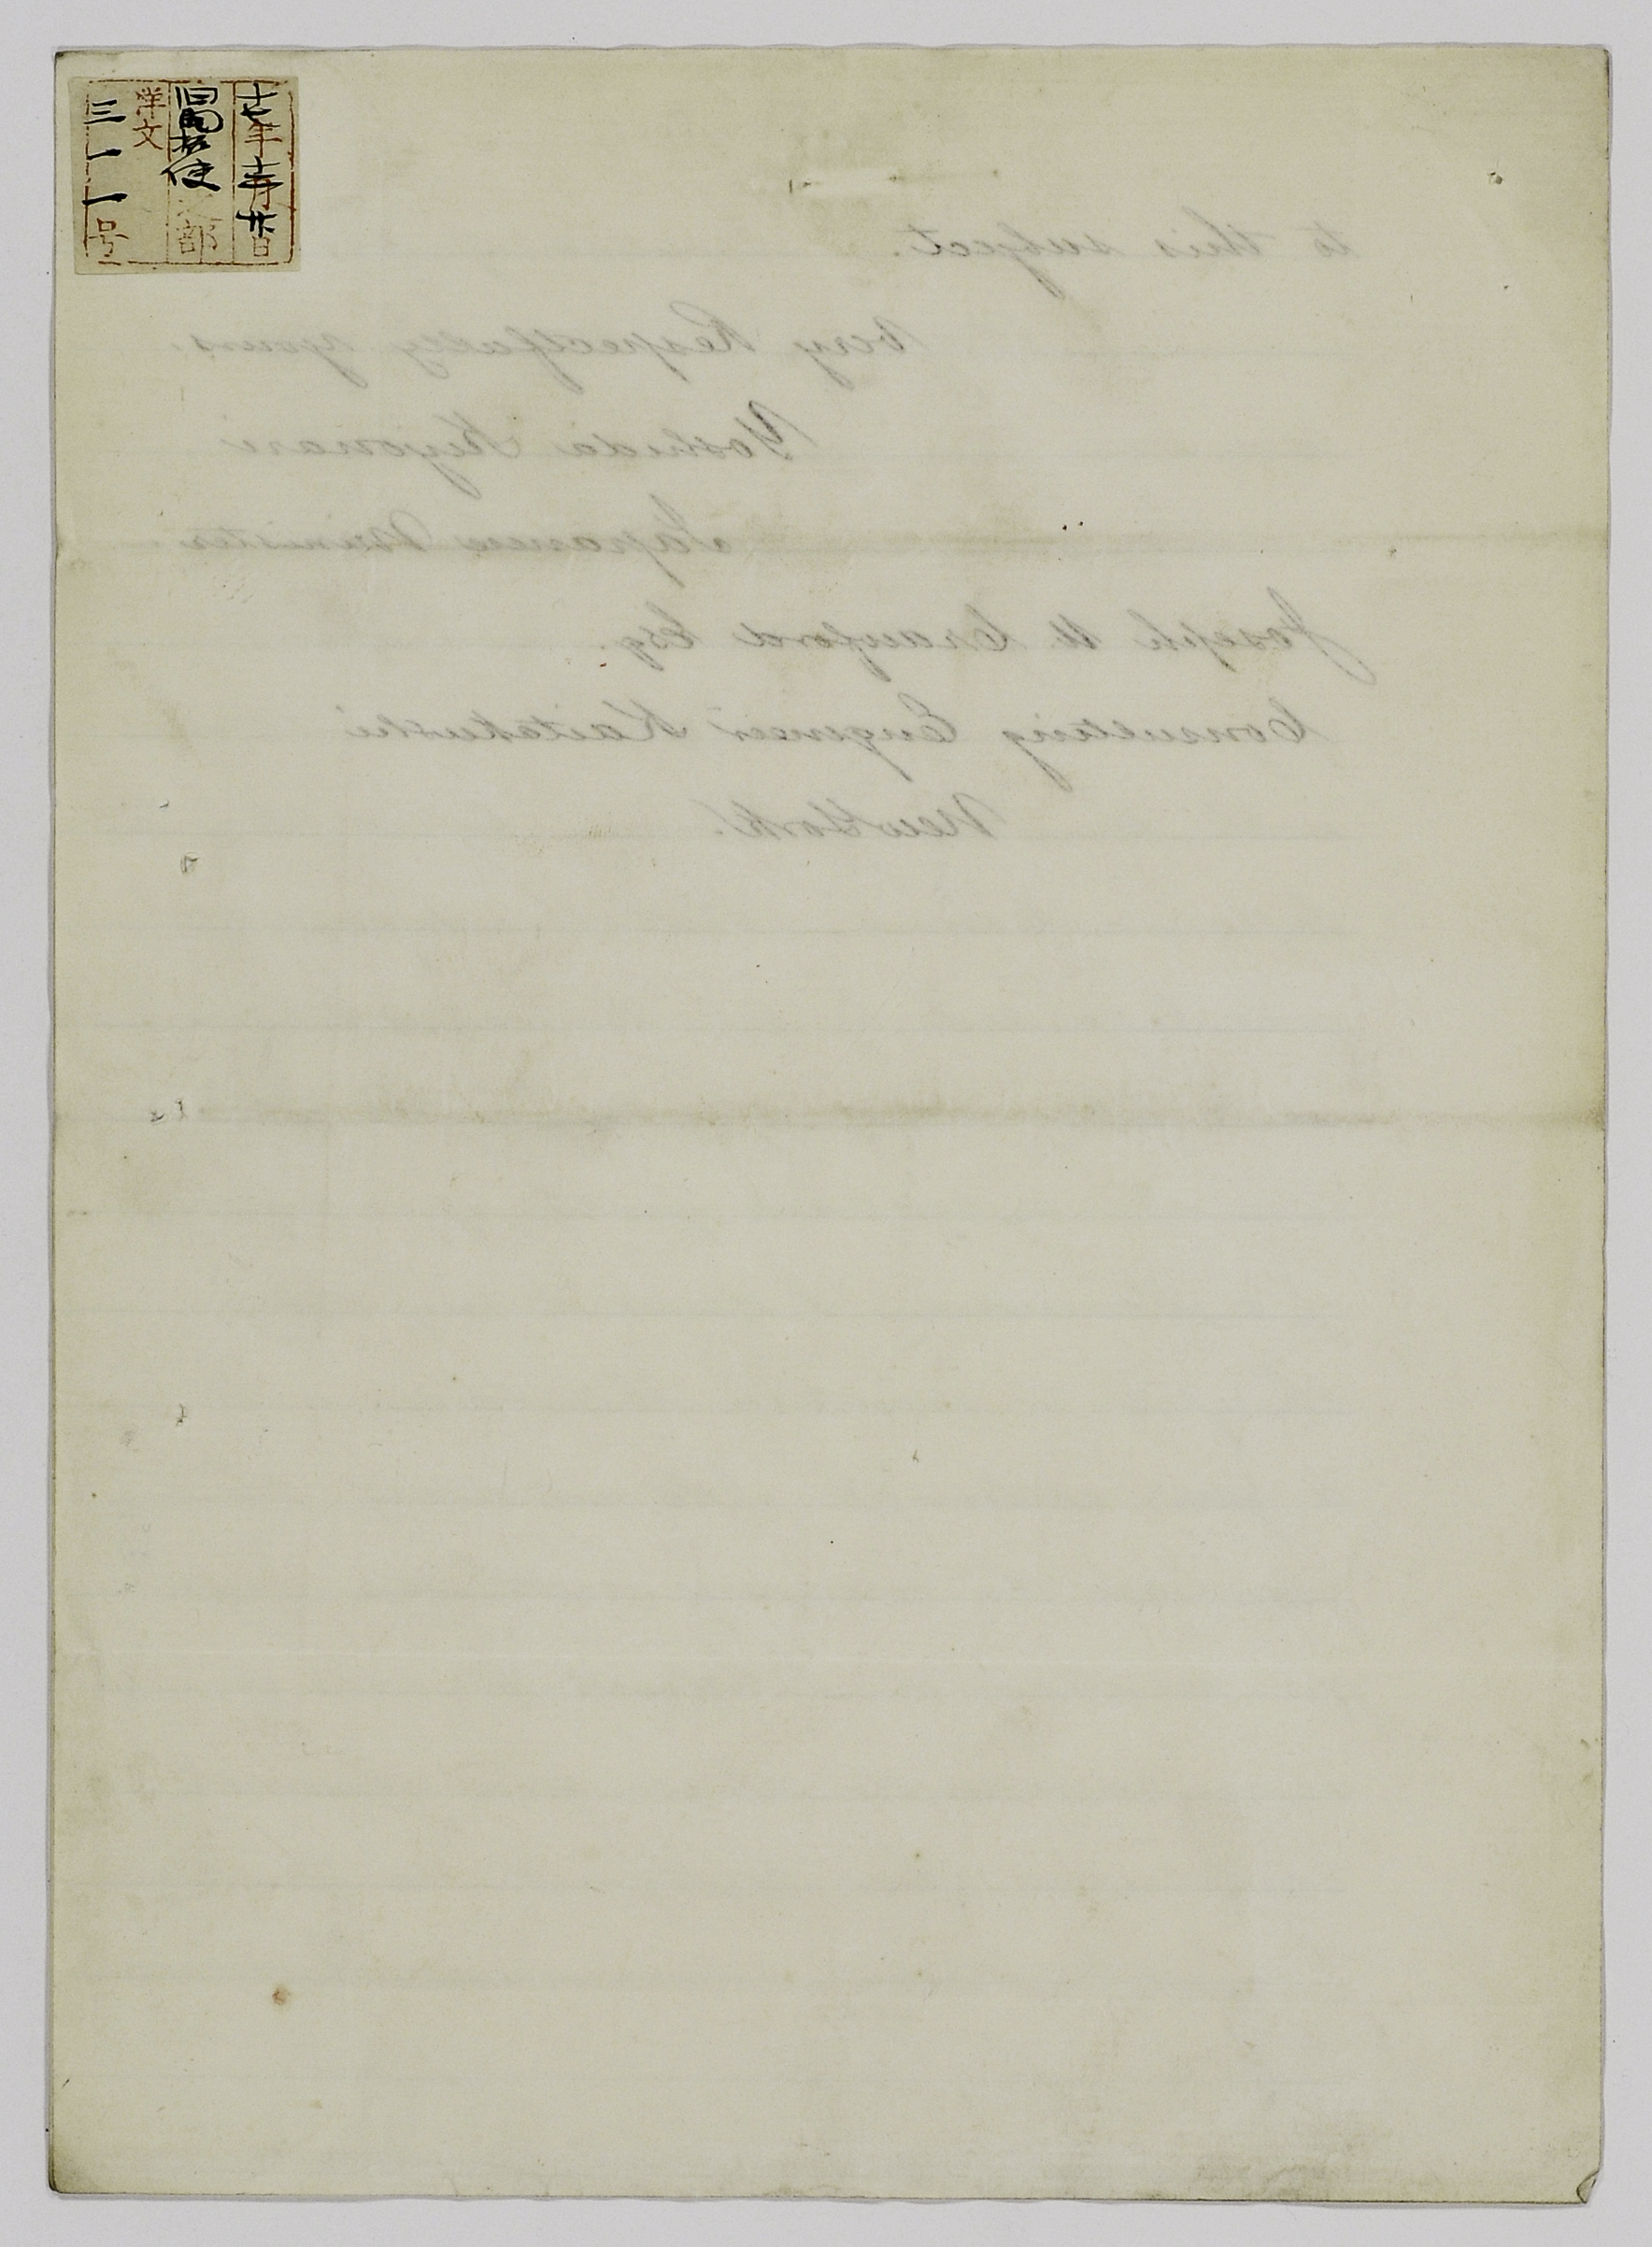 十七年十二月廿日
旧開拓使之部
洋文
三一一号
to this subject.
Very Respectfully yours.
Yoshida Kiyonari
Japanese Minister.
Joseph U. Crawford Esq.
Consulting Engineer Kaitakushi
New York.